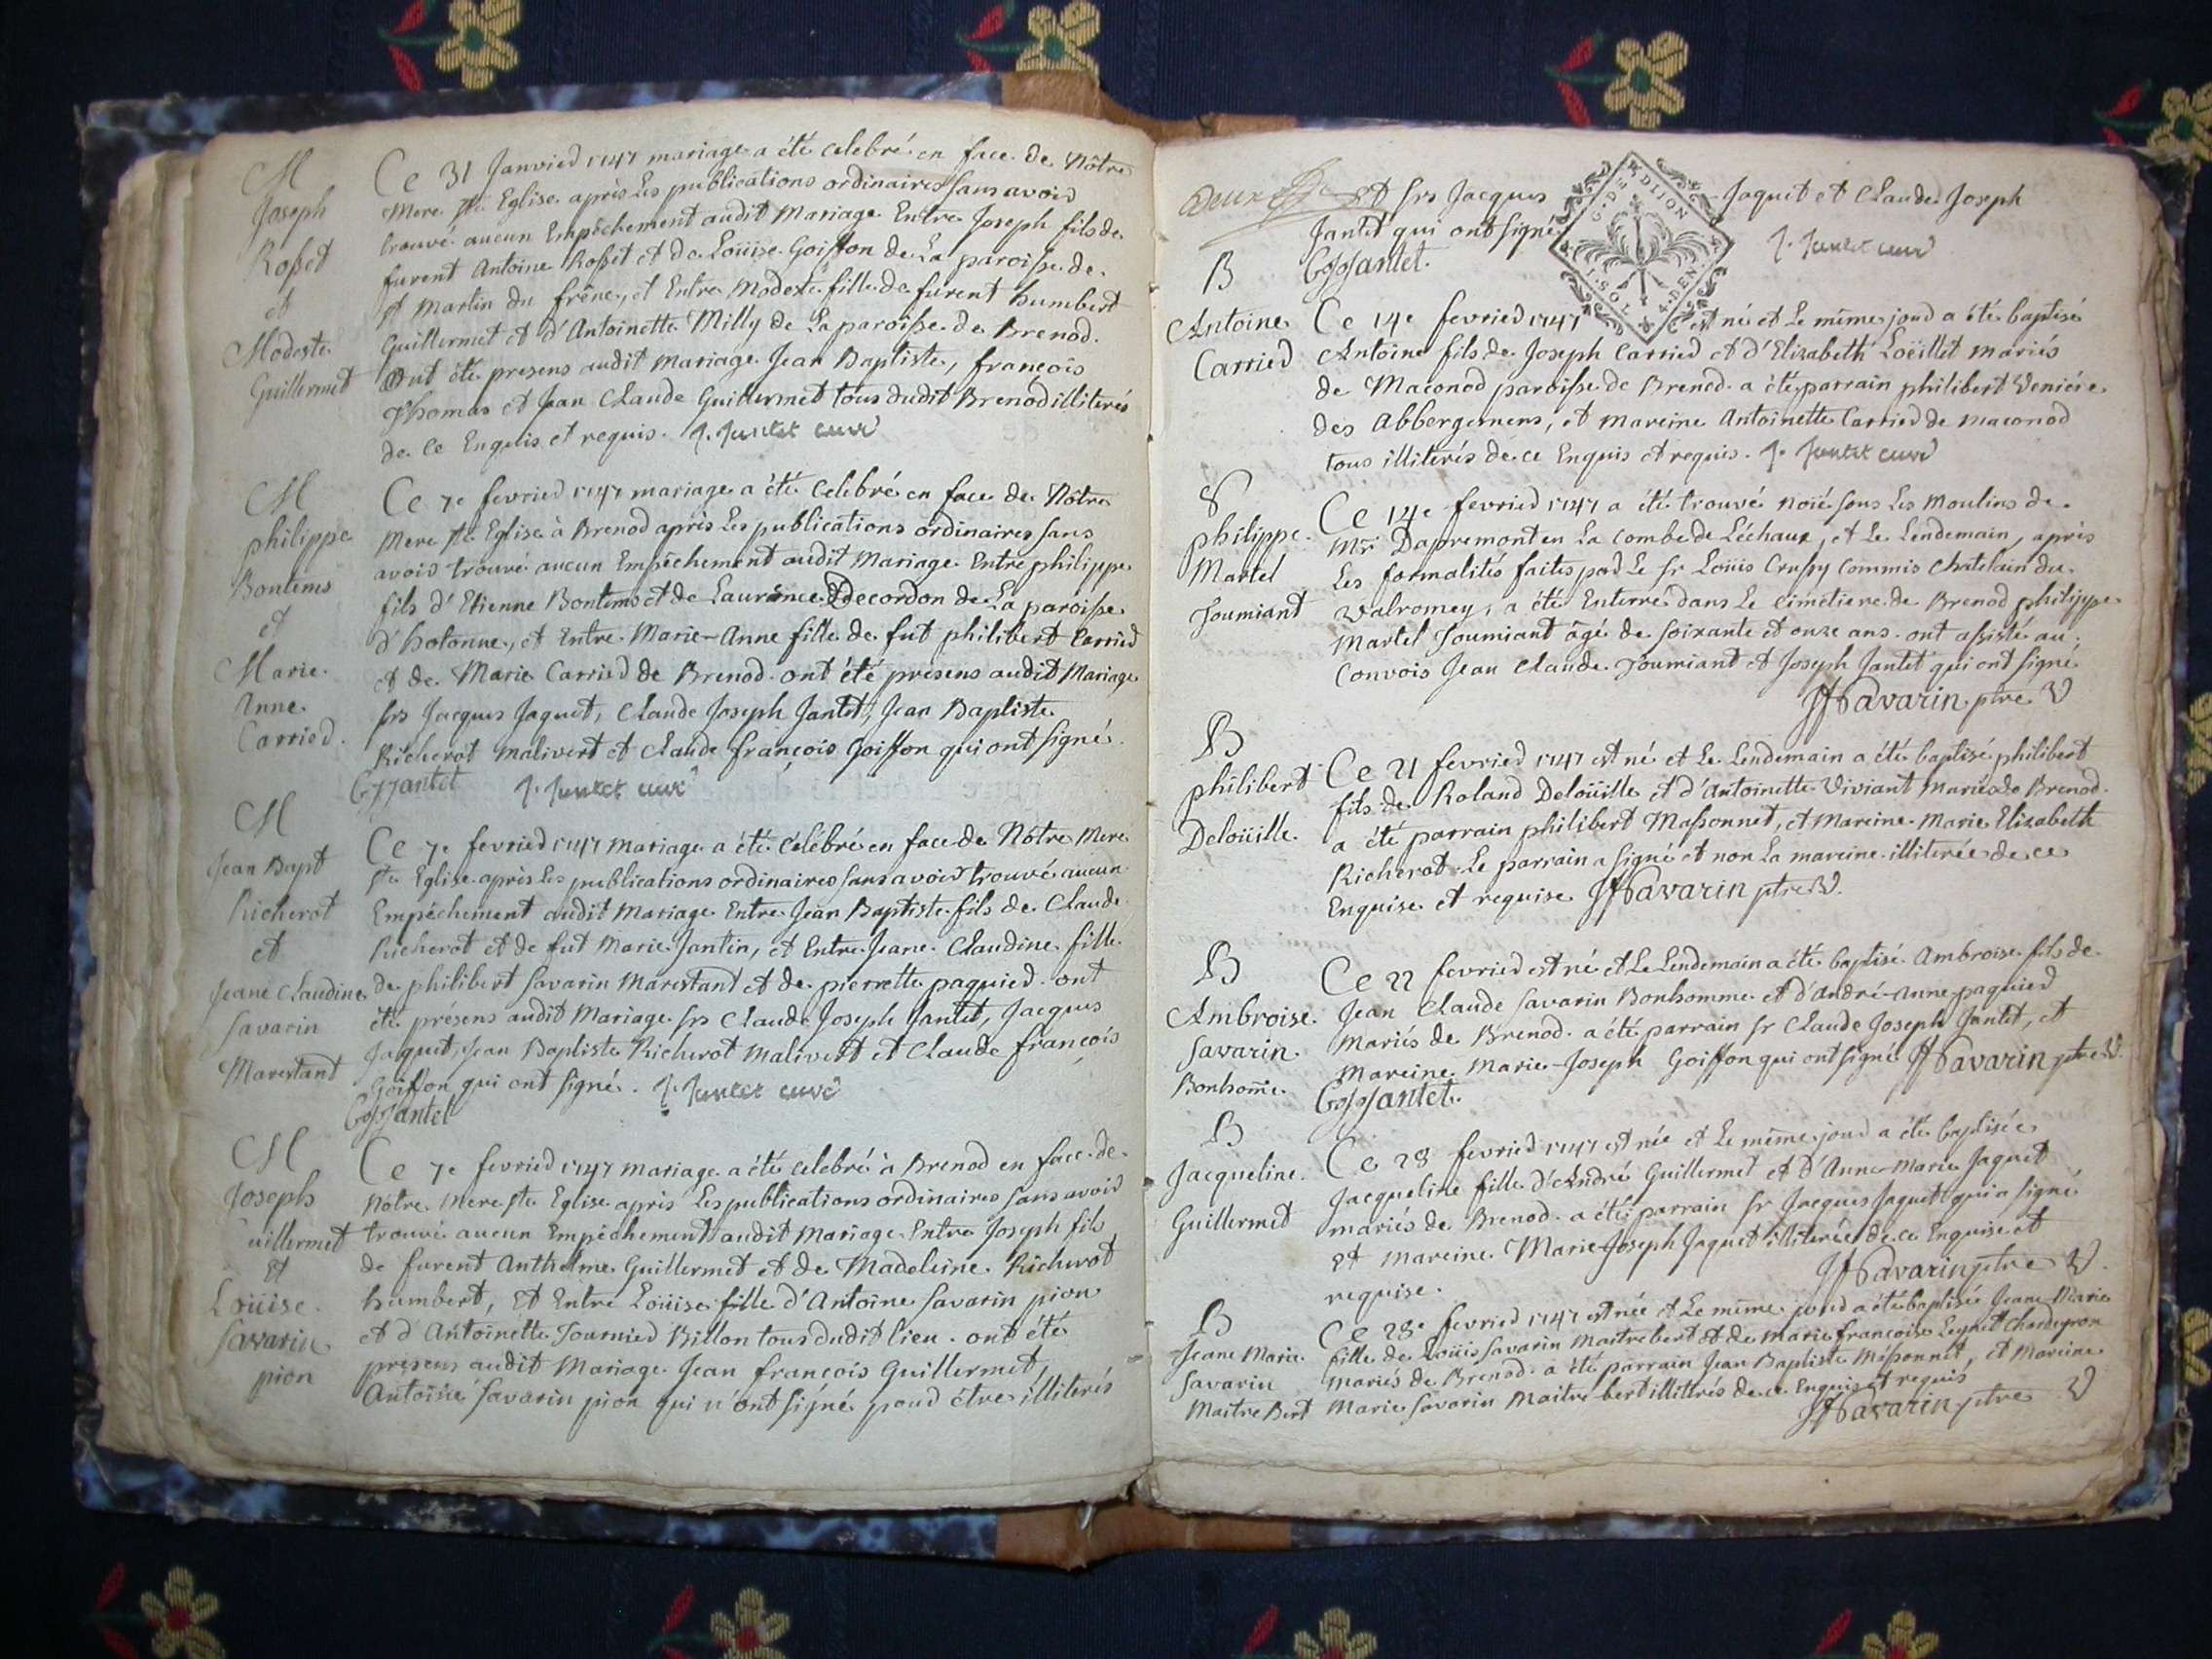 M
Joseph
Rosset
et
Modeste
Guillermet
Ce 31 Janvier 1747 mariage a été celebré en face de Nôtre
Mere Ste Eglise après Les publications ordinaires sans avoir
trouvé aucun Empêchement audit Mariage Entre Joseph fils de
furent Antoine Rosset et de Loüise Goiffon de La paroisse de
St Martin du frêne, et Entre Modeste fille de furent humbert
Guillermet et d'Antoinette Milly de La paroisse de Brenod.
Ont été presens audit mariage Jean Baptiste, françois
Thomas et Jean Claude Guillermet tous dudit Brenod illiterés
de ce Enquis et requis. J. Jantet curé
M
philippe
Bontems
et
Marie
Anne
Carrier
Ce 7e fevrier 1747 mariage a été Celebré en face de Nôtre
Mere Ste Eglise à Brenod après Les publications ordinaires sans
avoir trouvé aucun Empêchement audit Mariage Entre philippe
fils d'Etienne Bontems et de Laurence Decordon de La paroisse
d'hotonne, et Entre Marie-Anne fille de fut philibert Carrier
et de Marie Carrier de Brenod. ont été presens audit Mariage
srs Jacques Jaquet, Claude Joseph Jantet, Jean Baptiste
Richerot Malivert et Claude françois Goiffon qui ont signé.
CJJantet J. Jantet curé
M
Jean Bapt
Richerot
et
Jeane Claudine
Savarin
Marestant
Ce 7e fevrier 1747 Mariage a été Célébré en face de Nôtre Mere
Ste Eglise après Les publications ordinaires sans avoir trouvé aucun
Empêchement audit Mariage Entre Jean Baptiste fils de Claude
Richerot et de fut Marie Jantin, et Entre Jeane Claudine fille
de philibert Savarin Marestant et de pierrette paquier. ont
été présens audit Mariage srs Claude Joseph Jantet, Jacques
Jaquet, Jean Baptiste Richerot Malivert et Claude françois
Goiffon qui ont signé. J. Jantet curé
CJJantet
M
Joseph
uillermet
Et
Loüise
Savarin
pion
Ce 7e fevrier 1747 mariage a été celebré à Brenod en face de
Nôtre Mere Ste Eglise après Les publications ordinaires sans avoir
trouvé aucun Empêchement audit Mariage Entre Joseph fils
de furent Anthelme Guillermet et de Madeleine Richerot
humbert, Et Entre Loüise fille d'Antoine Savarin pion
et d'Antoinette Tournier Billon tous dudit lieu. ont été
présens audit Mariage Jean françois Guillermet,
Antoine Savarin pion qui n'ont signé pour être illiterés
deux
et srs Jacques Jaquet et Claude Joseph
Jantet qui ont signé J. Jantet curé
CJJantet.
G.DE DIJON
1.SOL 4.DEN
B
Antoine
Carrier
Ce 14e fevrier 1747 est né et Le même jour a été baptisé
Antoine fils de Joseph Carrier et d'Elizabeth Loüillet mariés
de Maconod paroisse de Brenod. a été parrain philibert Veniére
des Abbergemens, et mareine Antoinette Carrier de maconod
tous illiterés de ce Enquis et requis. J. Jantet curé
S
philippe
Martel
Toumiant
Ce 14e fevrier 1747 a été trouvé noié sous Les Moulins de
Mr Dapremont en La combe de Léchaux, et Le Lendemain, après
Les formalités faites par Le sr Loüis Commis Chatelain du
Valromey, a été Enterré dans Le cimetiere de Brenod philippe
Martel Toumiant âgé de soixante et onze ans. ont assisté au
Convois Jean Claude Toumiant et Joseph Jantet qui ont signé
Savarin ptre V
B
philibert
Deloüille
Ce 21 fevrier 1747 est né et Le Lendemain a été baptisé philibert
fils de Roland Deloüille et d'Antoinette Viviant Mariés de Brenod.
a été parrain philibert Massonnet, et Mareine Marie Elizabeth
Richerot. Le parrain a signé et non La mareine illiterée de ce
Enquise et requise Savarin ptre V.
B
Ambroise
Savarin
Bonhome
Ce 22 fevrier est né et Le Lendemain a été baptisé Ambroise fils de
Jean Claude Savarin Bonhomme et d'André-Anne paquier
Mariés de Brenod. a été parrain sr Claude Joseph Jantet, et
Mareine Marie-Joseph Goiffon qui ont signé Savarin ptre V.
CJJantet.
B
Jacqueline
Guillermet
Ce 28 fevrier 1747 est née et Le même jour a été baptisée
Jacqueline fille d'André Guillermet et d'Anne-Marie Jaquet
mariés de Brenod. a été parrain sr Jacques Jaquet qui a signé
et mareine Marie-Joseph Jaquet illiterée de ce Enquise et
requise. Savarin ptre V.
B
Jeane Marie
Savarin
Maitre Bert
Ce 28e fevrier 1747 est née et Le même jour a été baptisée Jeane Marie
fille de Loüis Savarin Maitrebert et de Marie françoise Leynet Chardeyron
Mariés de Brenod. a été parrain Jean Baptiste Massonnet, et Mareine
Marie Savarin Maitre bert illiterés de ce Enquis et requis
Savarin ptre V